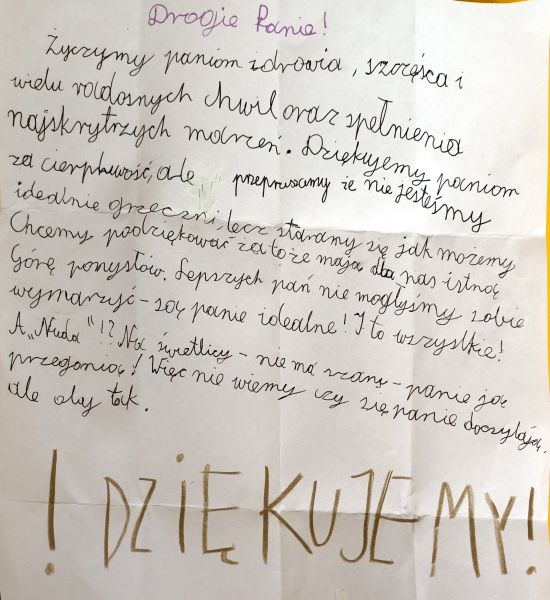 Drogie Panie!
Życzymy paniom zdrowia, szczęśca i
wielu radosnych chwil oraz spełnienia
najskrytrzych marzeń. Dziękujemy paniom
za cierpliwość, ale przepraszamy że nie jesteśmy
idealnie grzeczni, lecz staramy się jak możemy
Chcemy podziękować za to że mają dla nas istną
Górę pomysłów. Lepszych pań nie mogłyśmy sobie
wymarzyć - są panie idealne! I to wszystkie!
A „Nuda"!? Na świetlicy - nie ma szans - panie ją
przegonią! Więc nie wiemy czy się panie doczytają,
ale oby tak.
! DZIĘKUJEMY!